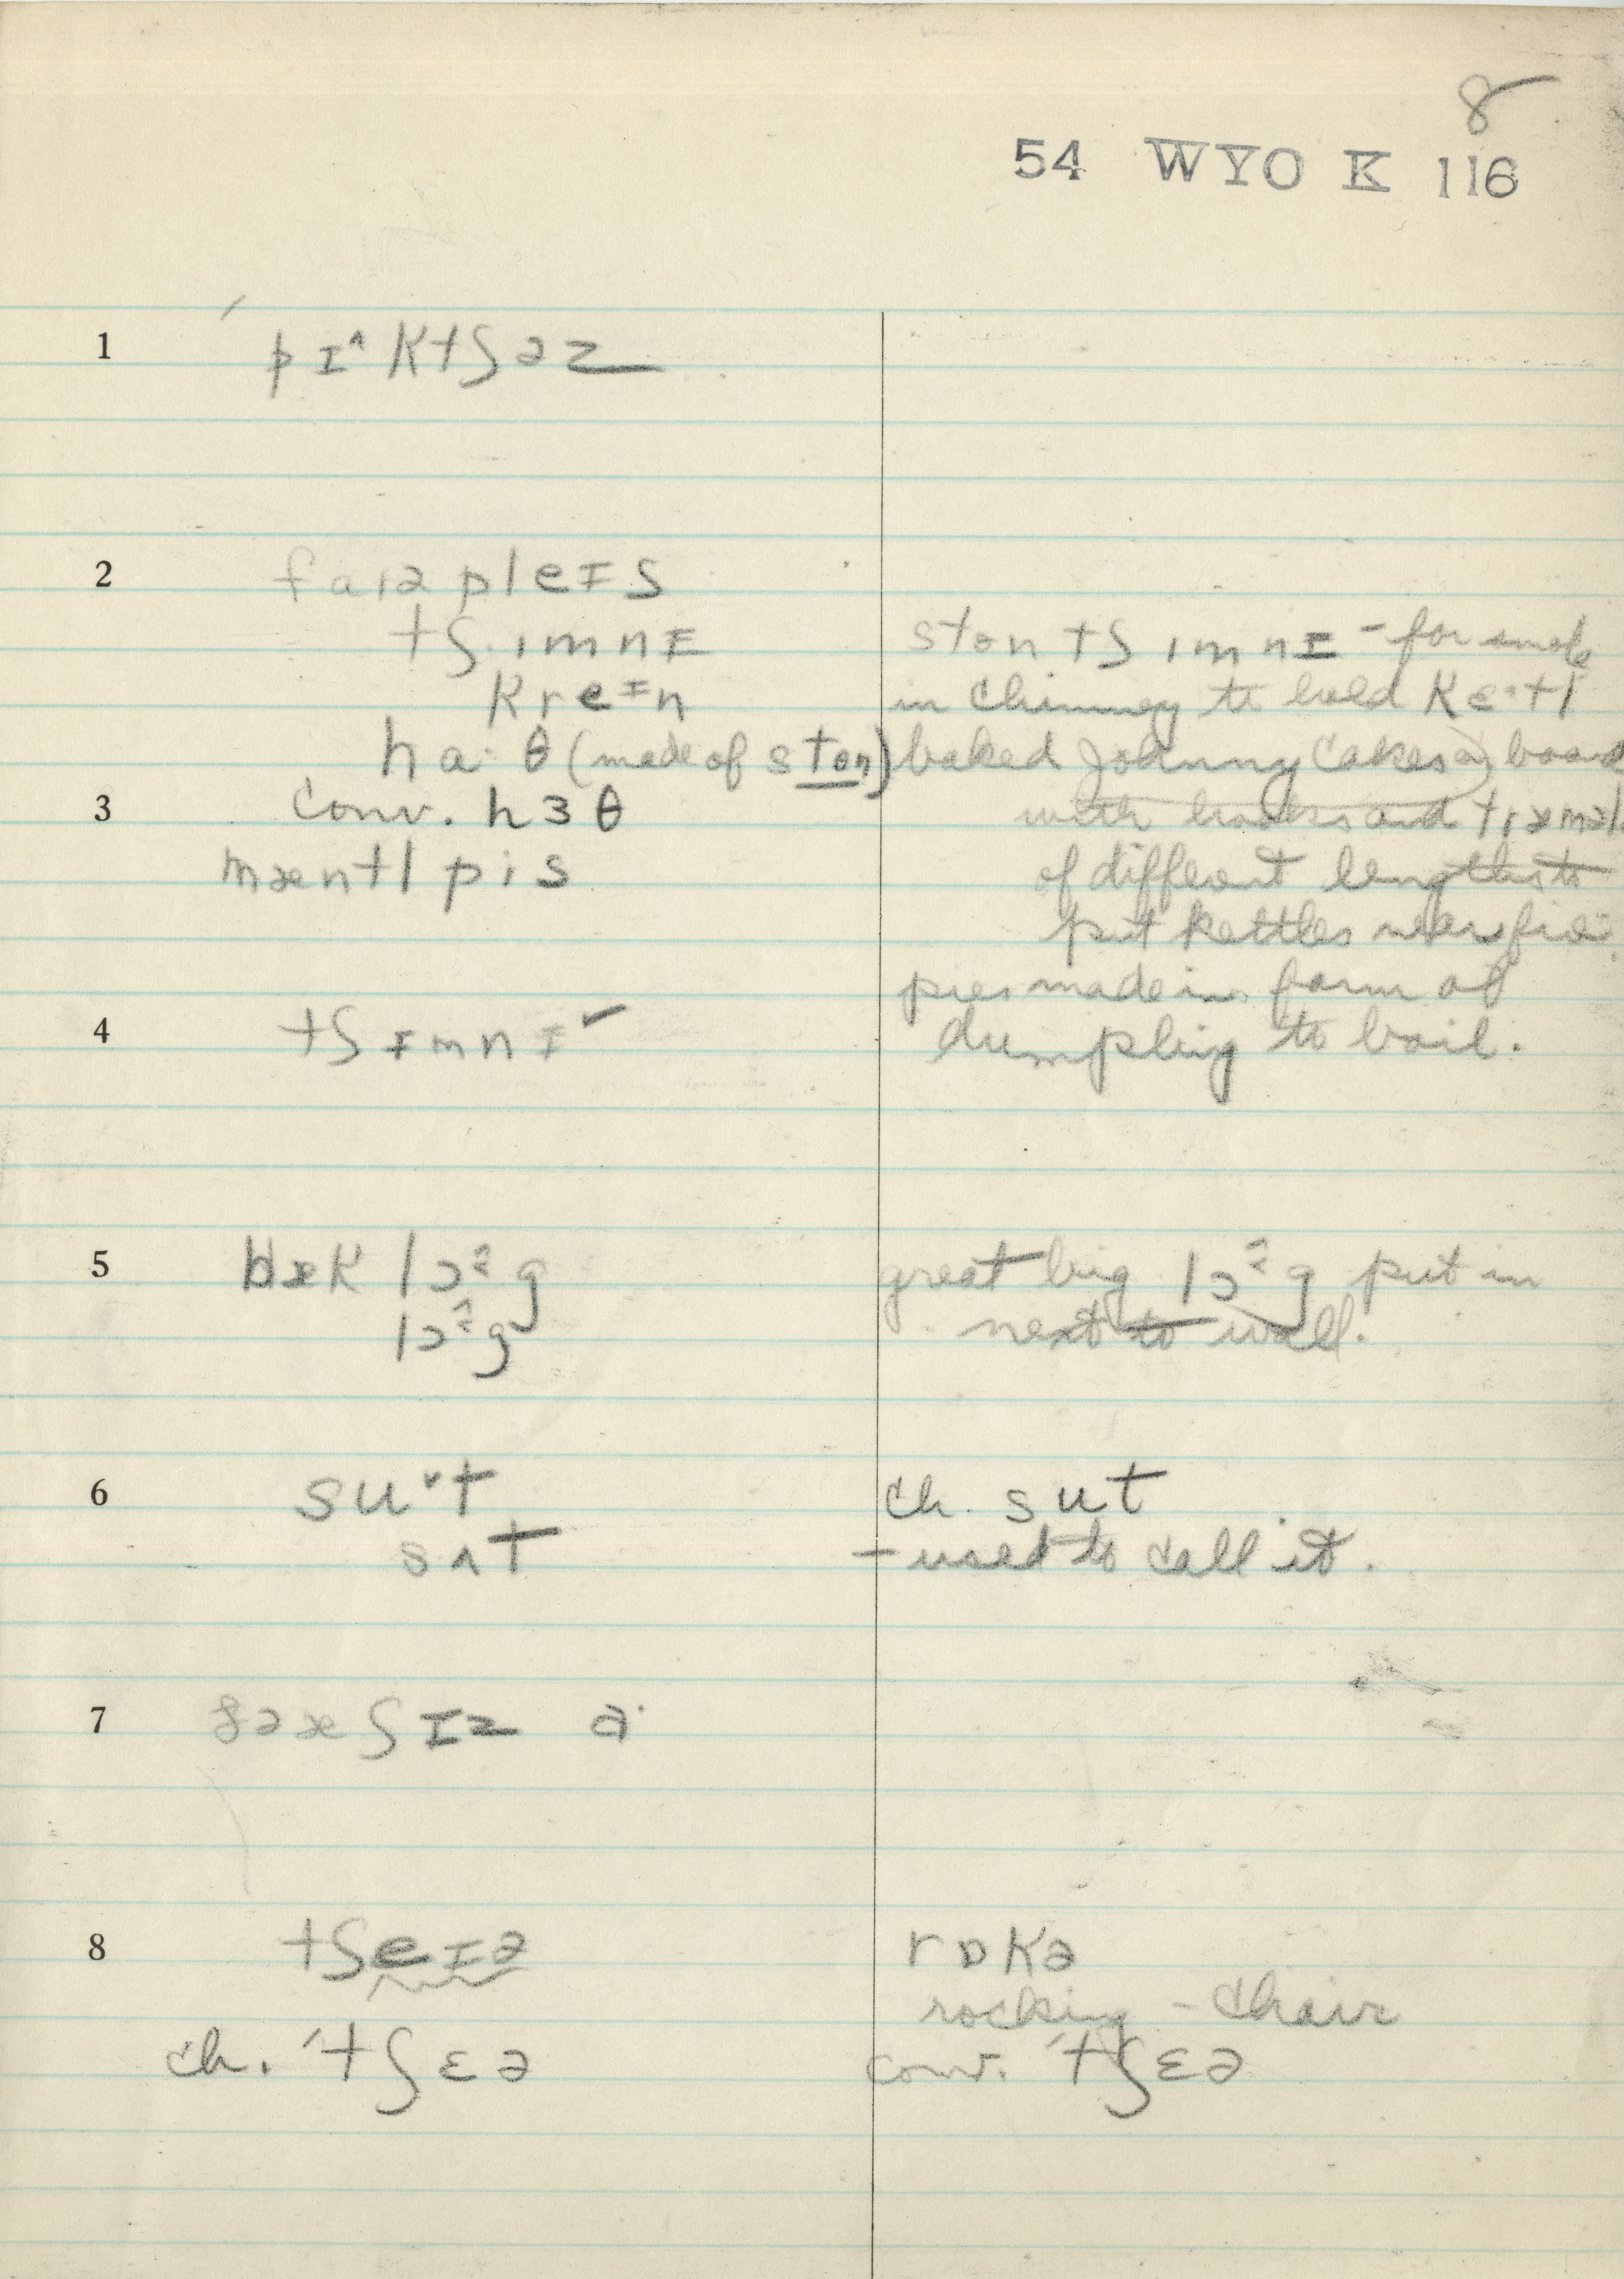 8
54 WYO K 116
1 pɪ^ktʃəz
2 faɪə pleɪs
tʃɪmnɪ
kreɪn
ha·θ (made of ston)
3 conv. hɜθ
mæntl pis
ston tʃɪmnɪ - for smoke
in chimney to hold kɛ·tl
baked Johnny cakes a) board
with hooks and
of different lengths to
put kettles near fire
pies made in form of
dumpling to boil.
4 tʃɪmnɪ ✓
5 bæk lɔ^g
lɔ^g
great big lɔ^g put in
next to wall.
6 suˇt
sʌt
ch. sut
- used to call it.
7 ðə æʃɪz a·
8 tʃeɪə
ch. 'tʃɛə
rɒkə
rocking - chair
conv. 'tʃɛə